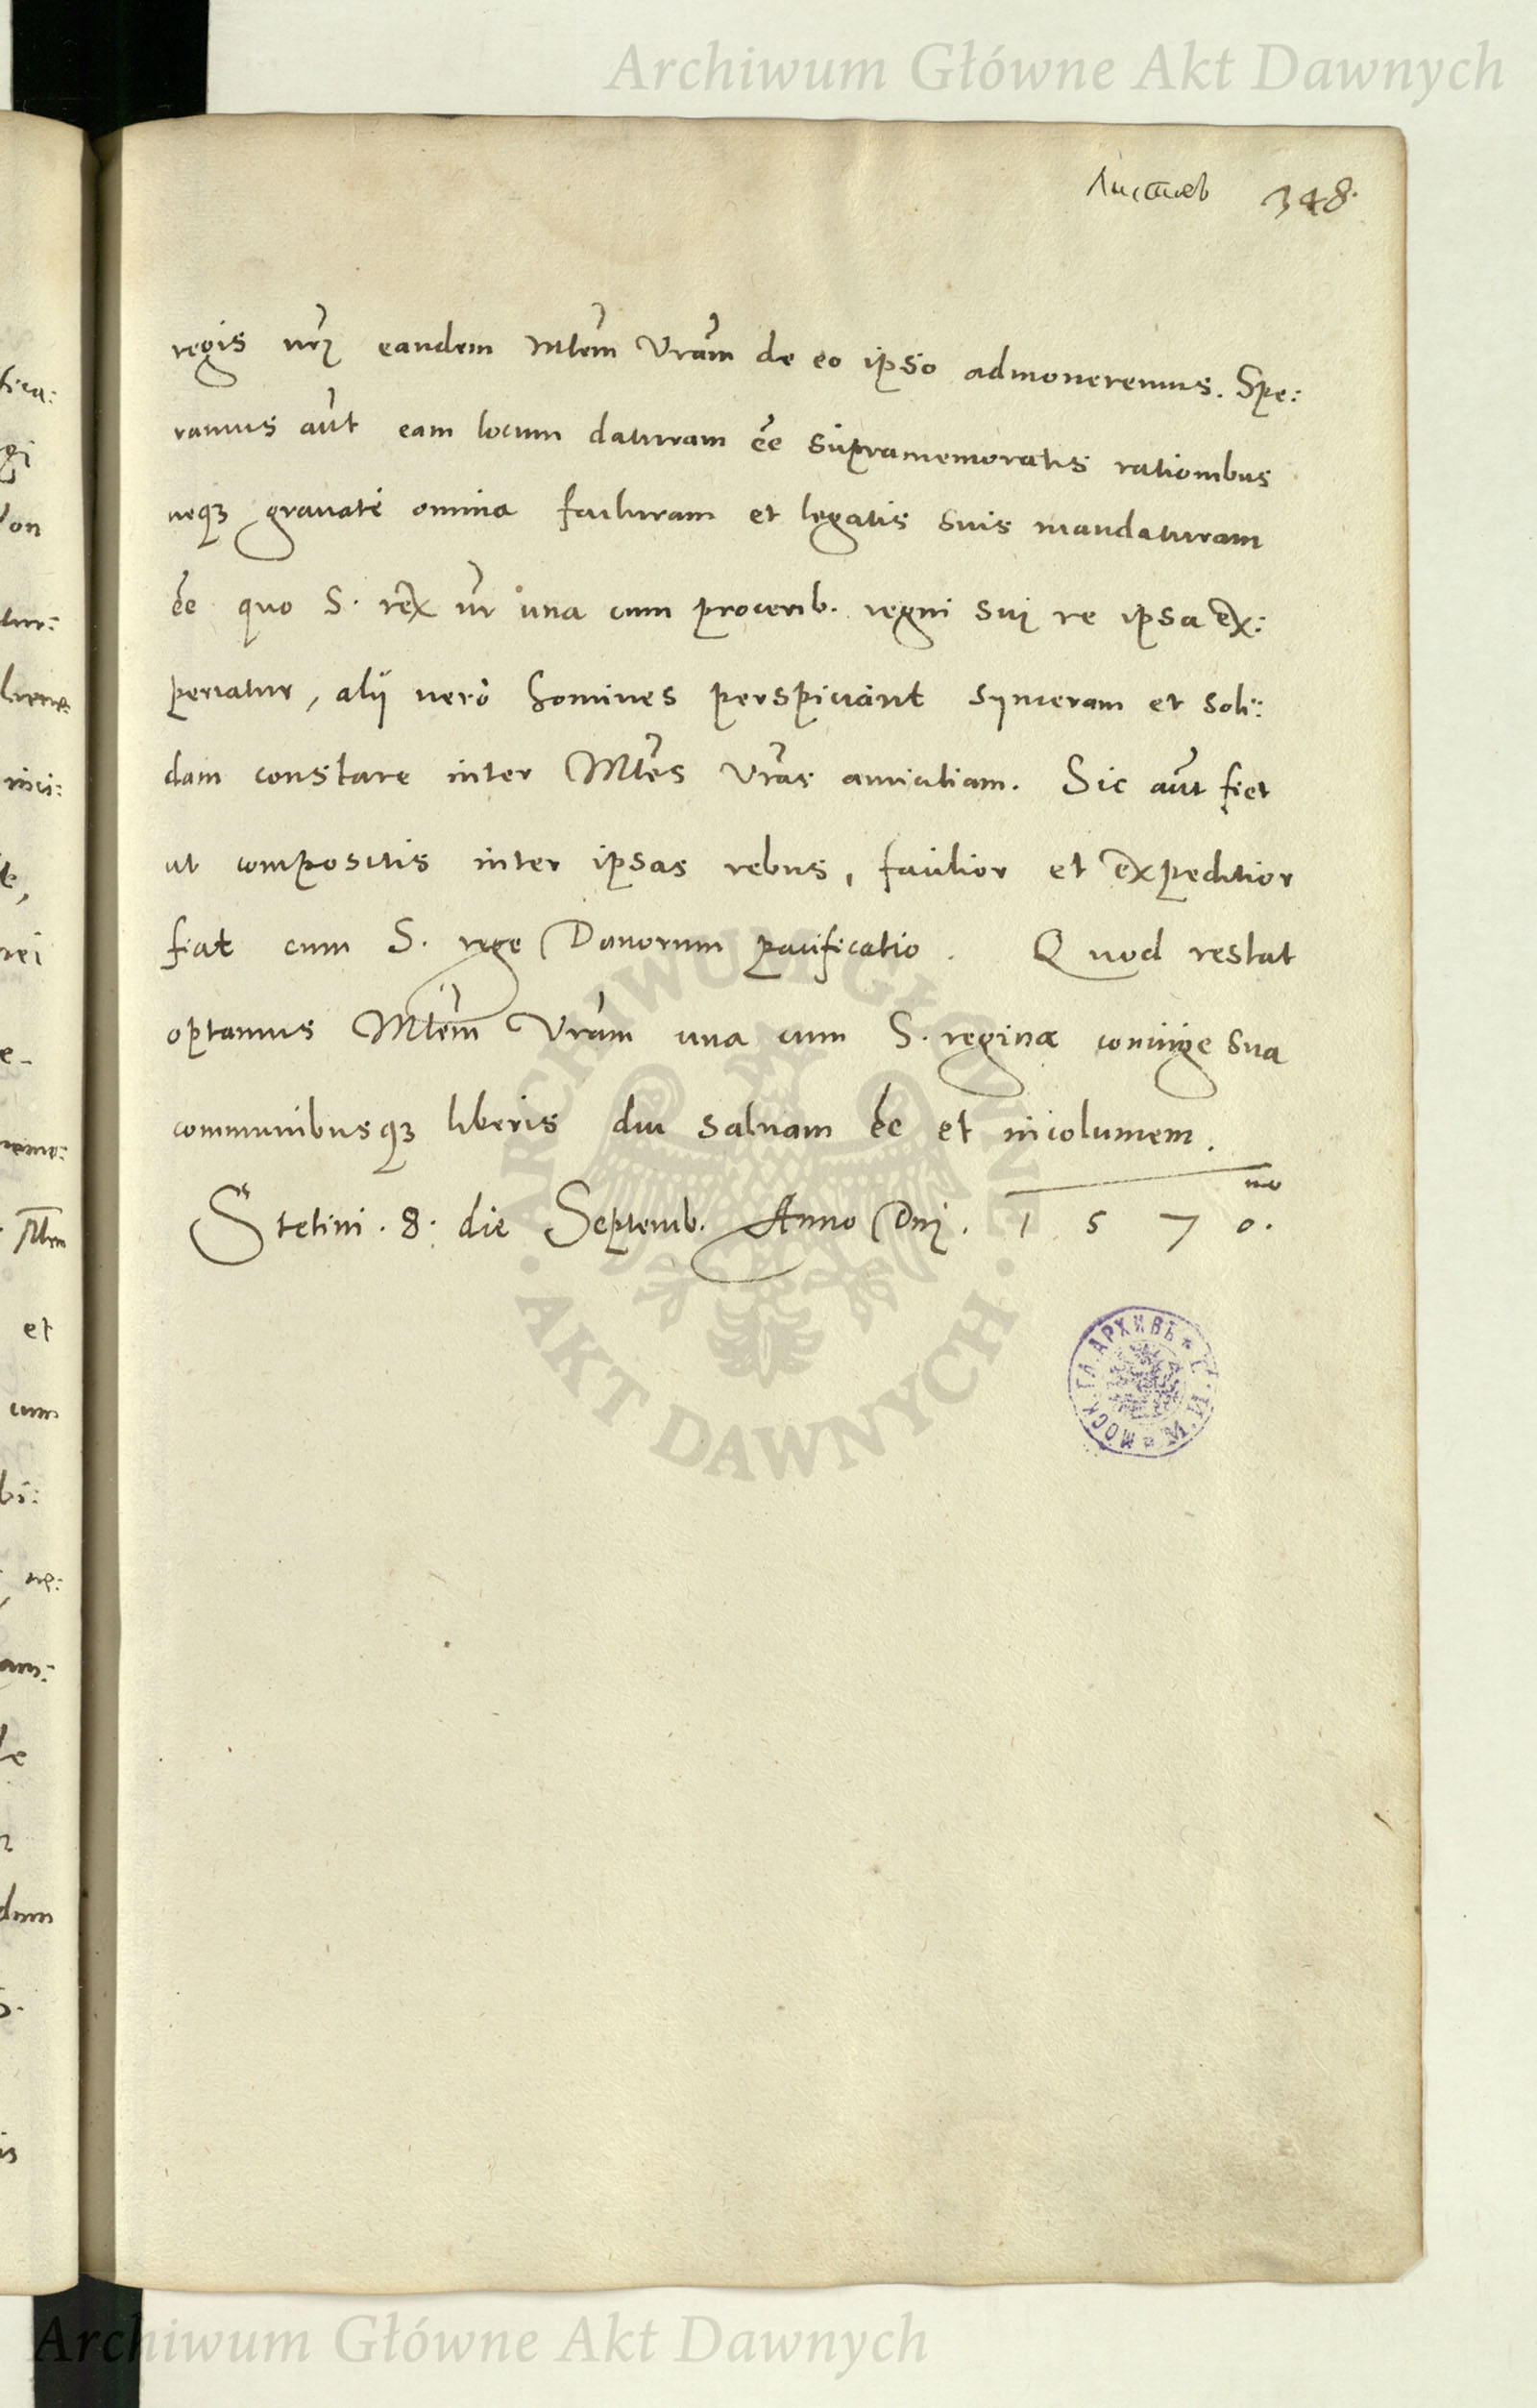 Archiwum Główne Akt Dawnych
Листов 348.
regis nrj eandem Mtem Vram de eo ipso admoneremus. Spe:
ramus aut eam locum daturam ee supramemoratis rationibus
neqꝫ grauate omnia facturam et legatis suis mandaturam
ee quo S. rex nr una cum procerib. regni sui re ipsa ex:
periatur, alij vero homines perspiciant synceram et soli:
dam constare inter Mtes Vras amicitiam. Sic aut fiet
ut compositis inter ipsas rebus, facilior et expeditior
fiat cum S. rege Danorum pacificatio. Quod restat
optamus Mtem Vram una cum S. regina coniuge sua
communibusqꝫ liberis diu saluam ee et incolumem.
Stetini. 8. die Septemb. Anno Dnj. 1570. mo
ARCHIWUM GŁÓWNE
AKT DAWNYCH
МОСК. ГЛ. АРХИВЪ * М.И.Д.
fica:
gi
on
tur:
nici:
rei
Mtem
et
cum
bi:
am:
le
dum
is
Archiwum Główne Akt Dawnych